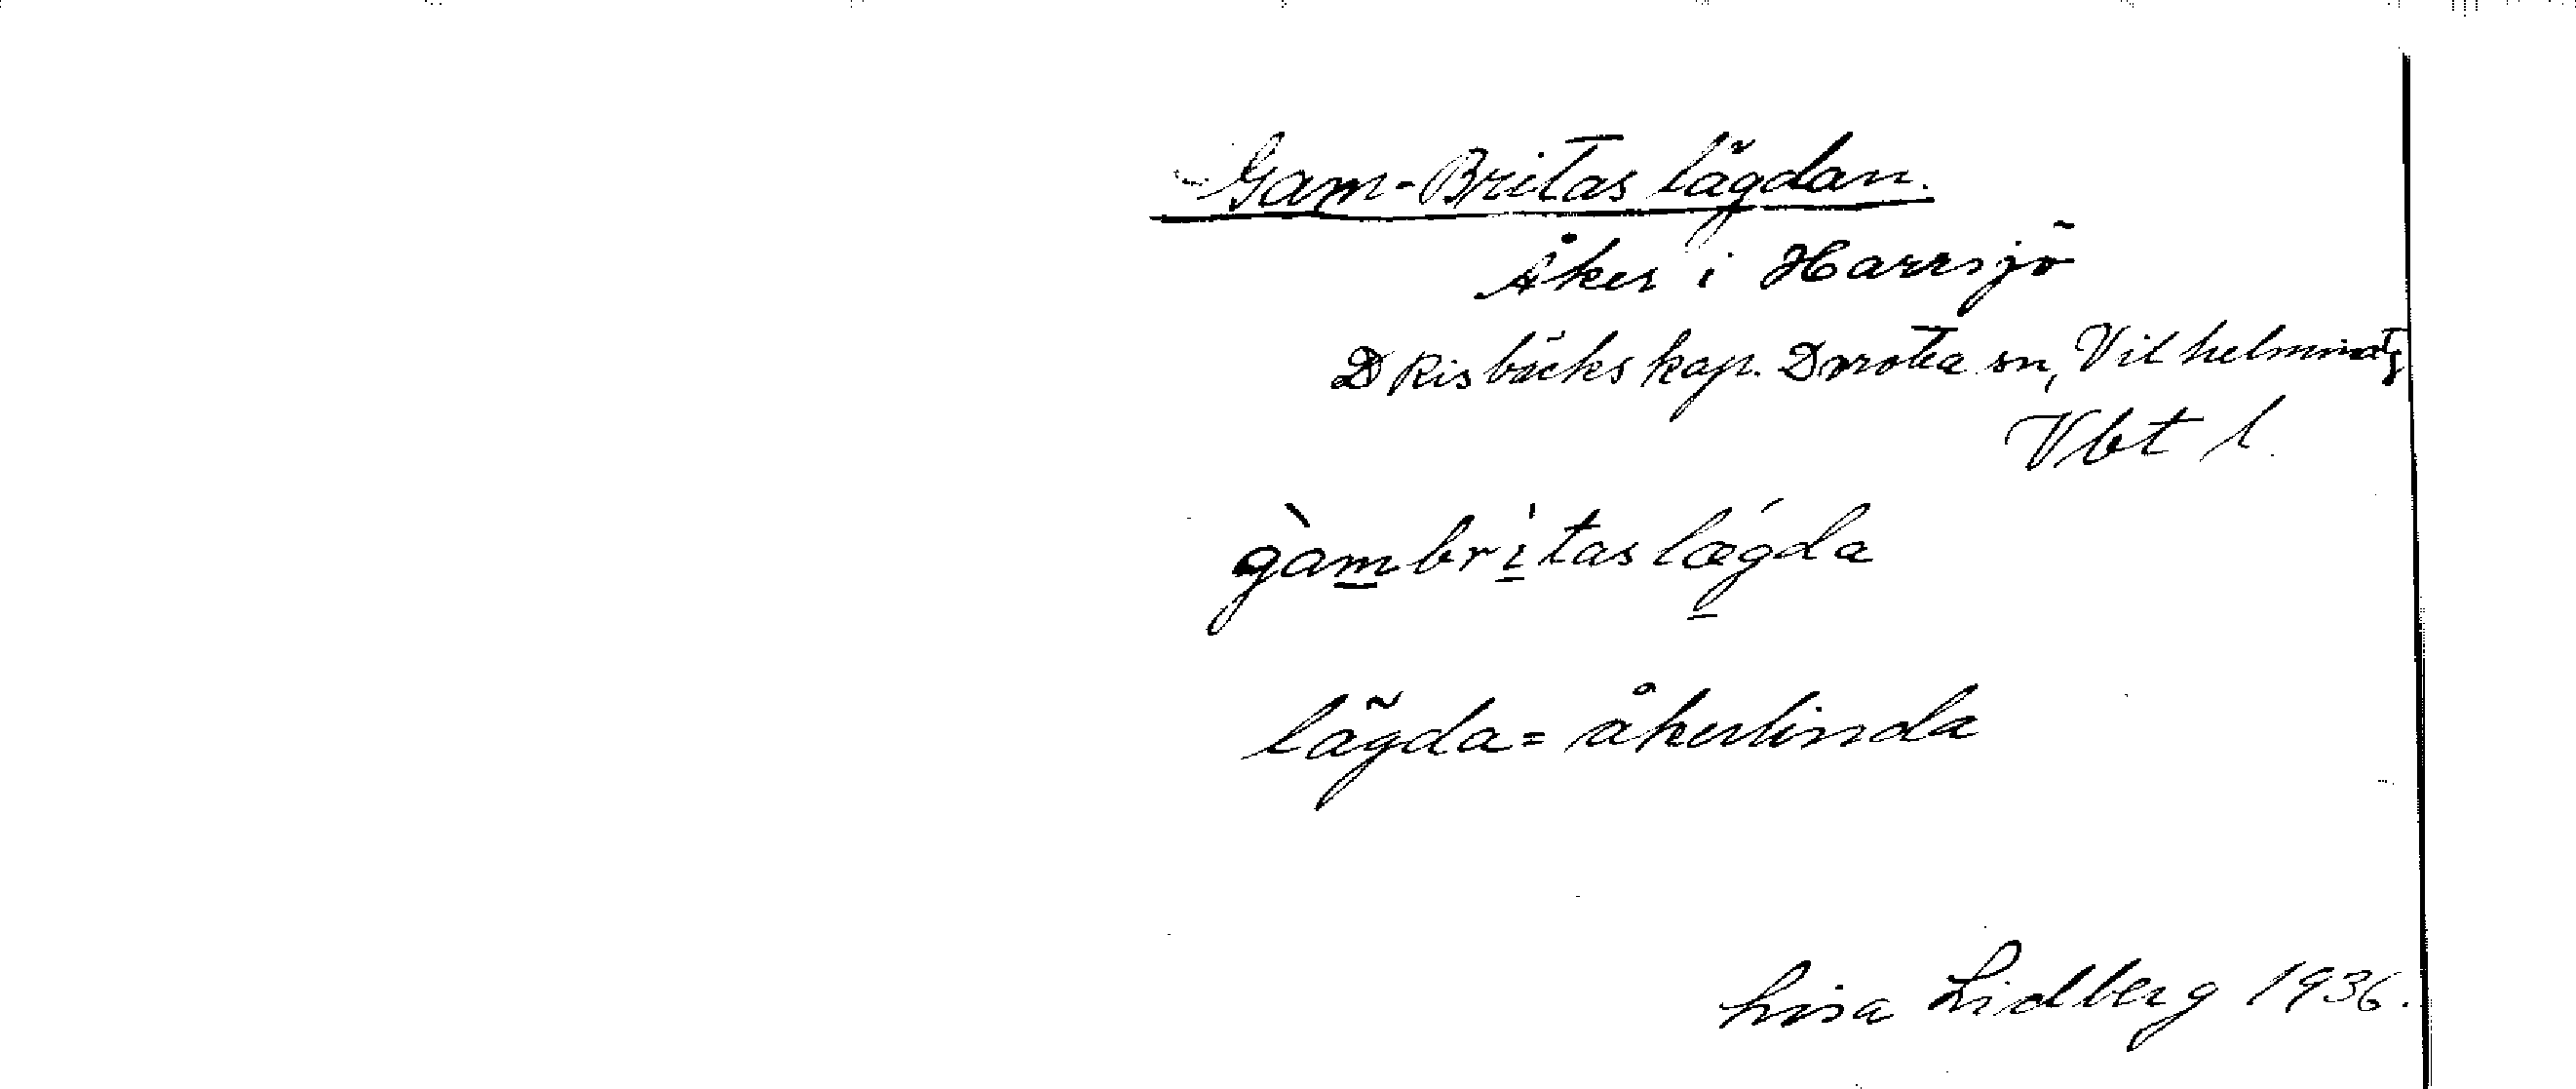 Gam-Britas lägdan.
Åker i Harrsjö
D Risbäcks kap. Dorotea sn, Vilhelmina tg
Vbt l.
gàmbrìtaslǽgda
lägda = åkerlinda
Lisa Lidberg 1936.